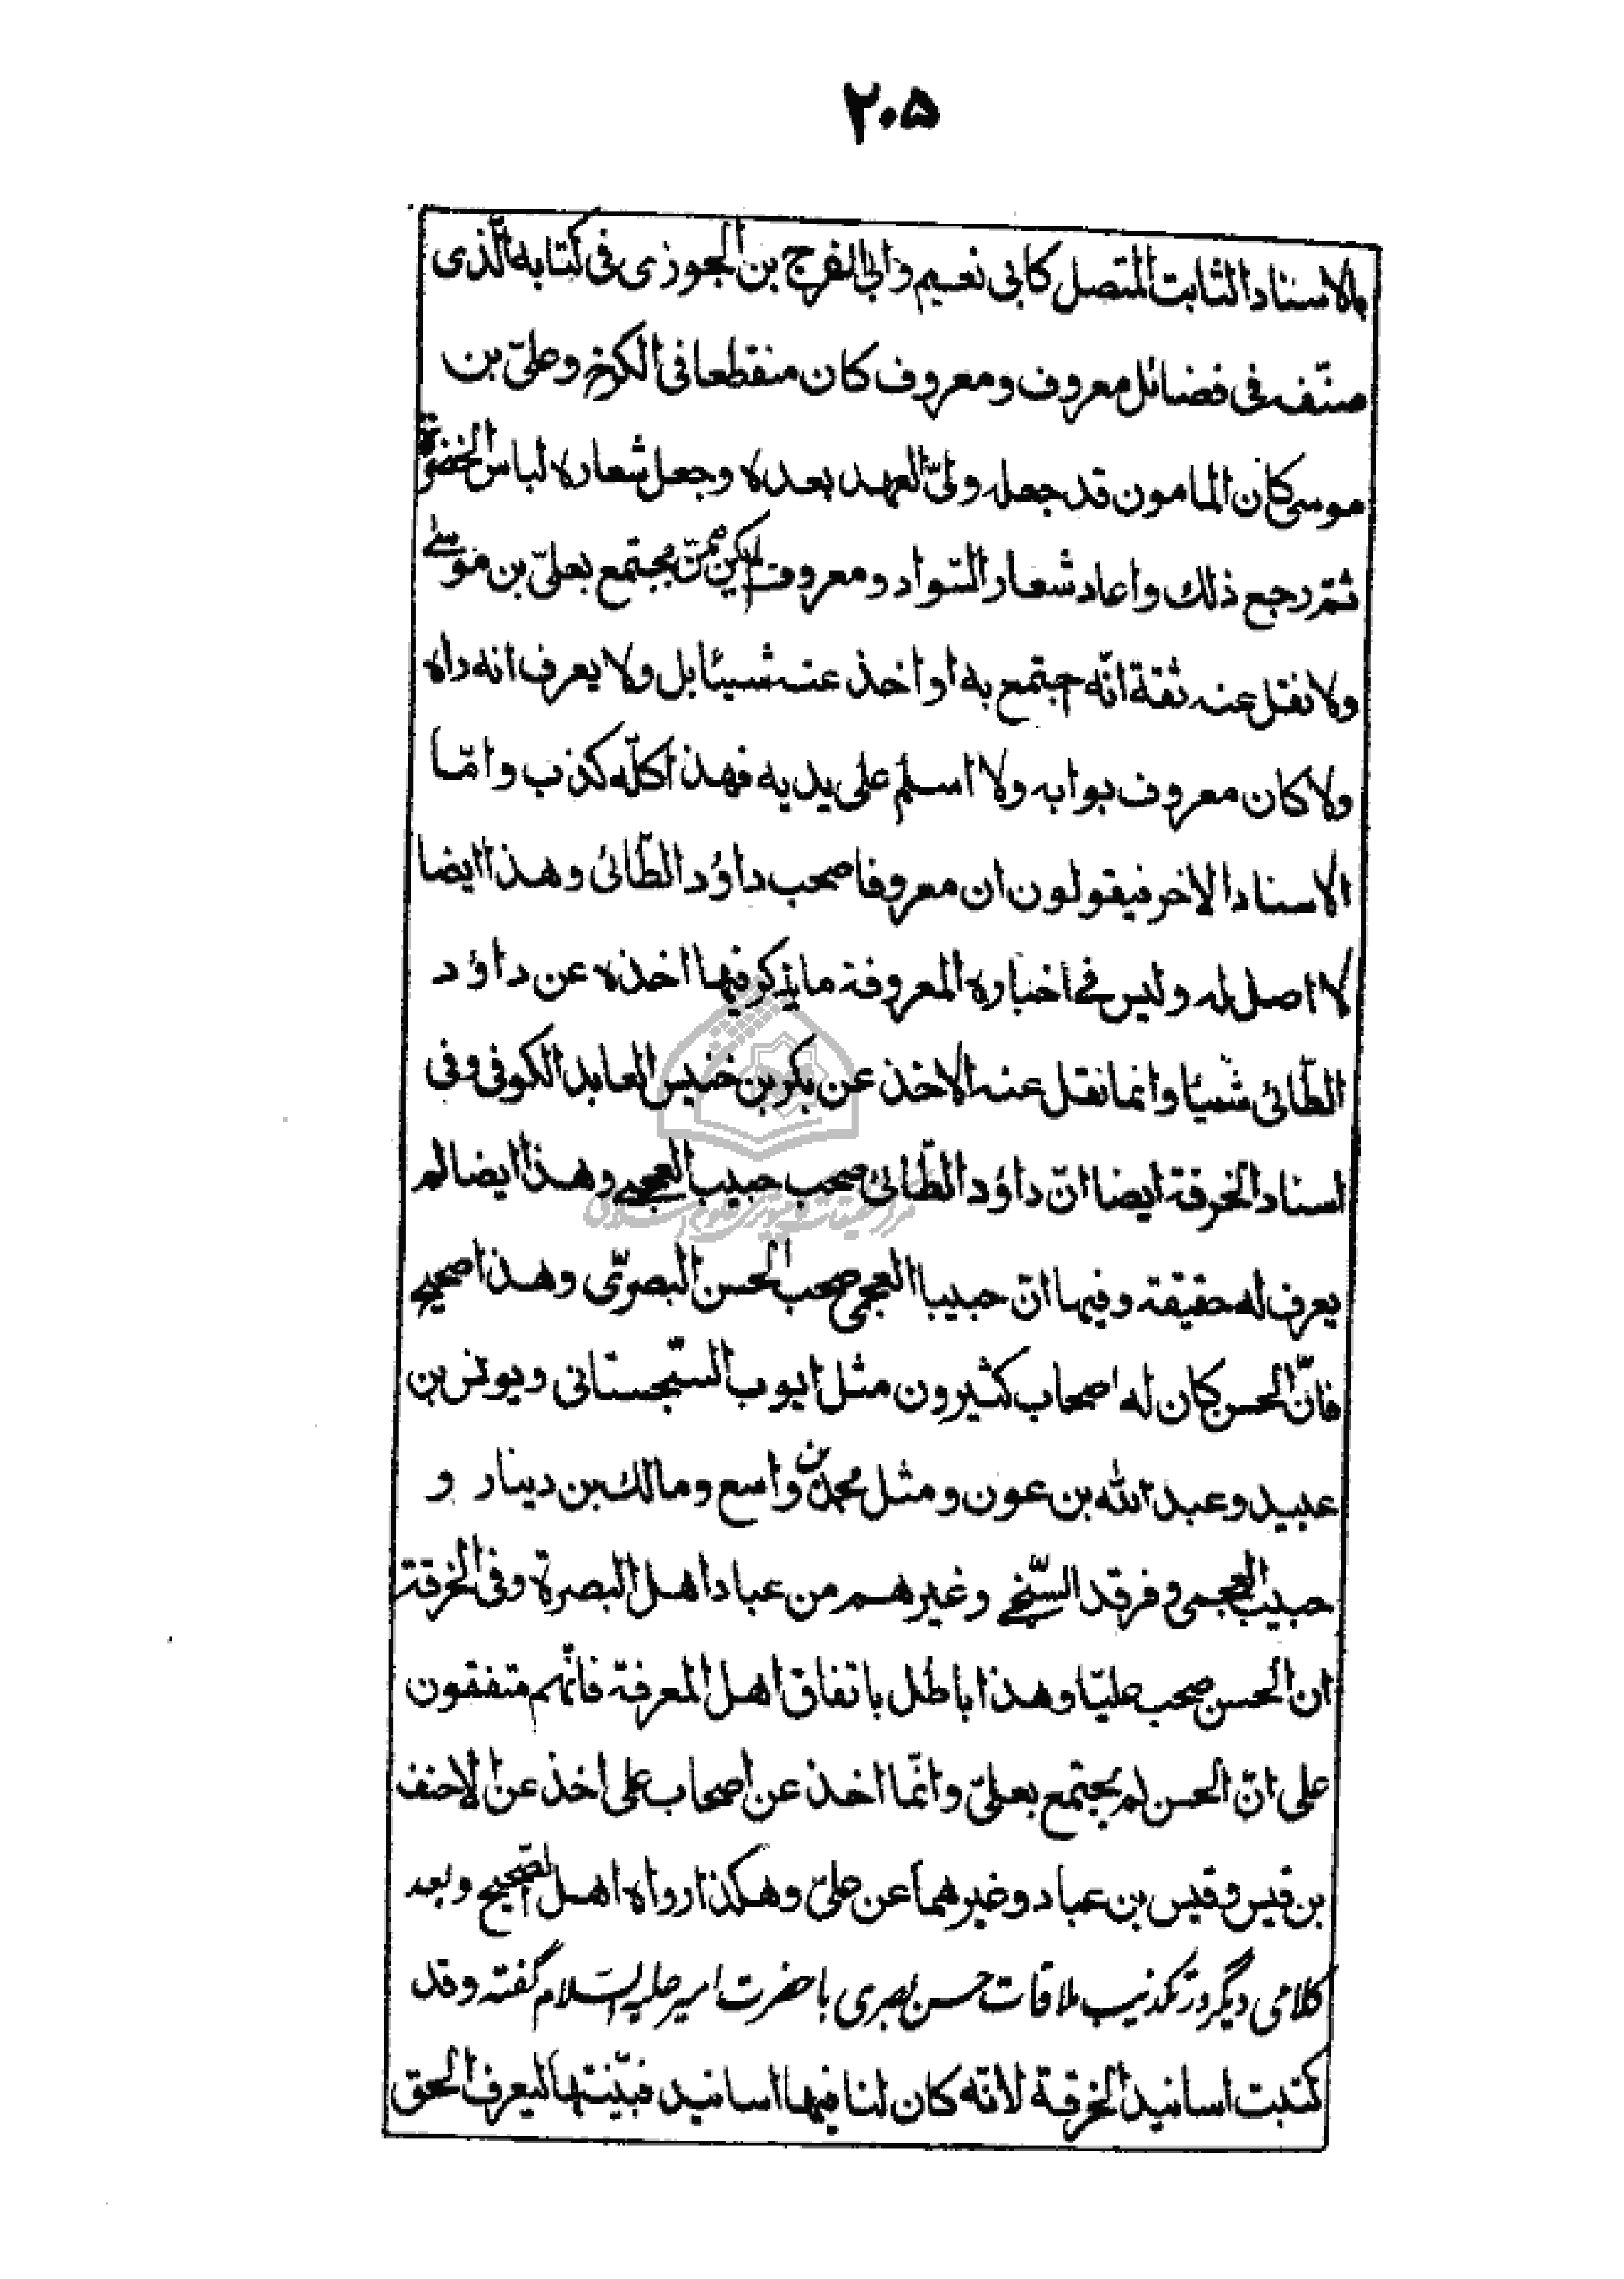 ۲۰۵
بالاسناد الثابت المتصل كابى نعيم وابى الفرج بن الجوزى فى كتابه الّذى
صنّفه فى فضائل معروف ومعروف كان منقطعا فى الكرخ وعلىّ بن
موسى كان المامون قد جعله ولىّ العهد بعده وجعل شعاره لباس الخضرة
ثمّ رجع ذلك واعاد شعار السّواد ومعروف لم يكن ممّن يجتمع بعلىّ بن موسى
ولا نقل عنه ثقة انّه اجتمع به او اخذ عنه شيئا بل ولا يعرف انه راه
ولا كان معروف بوابه ولا اسلم على يديه فهذا كلّه كذب وامّا
الاسناد الاخر فيقولون ان معروفا صحب داؤد الطّائى وهذا ايضا
لا اصل له وليس فى اخباره المعروفة ما يذكر فيها اخذه عن داؤد
الطّائى شيئا وانما نقل عنه الاخذ عن بكر بن خنيس العابد الكوفى وفى
اسناد الخرقة ايضا انّ داؤد الطّائى صحب حبيب العجمى وهذا ايضا لم
يعرف له حقيقة وفيها انّ حبيبا العجمى صحب الحسن البصرىّ وهذا صحيح
فانّ الحسن كان له اصحاب كثيرون مثل ايوب السّجستانى ويونس بن
عبيد وعبد الله بن عون ومثل محمد بن واسع ومالك بن دينار و
حبيب العجمى وفرقد السّنجى وغيرهم من عباد اهل البصرة وفى الخرقة
ان الحسن صحب عليّا وهذا باطل باتفاق اهل المعرفة فانّهم متفقون
على انّ الحسن لم يجتمع بعلىّ وانّما اخذ عن اصحاب على اخذ عن الاحنف
بن قيس وقيس بن عباد وغيرهما عن علىّ وهكذا رواه اهل الصّحيح وبعد
كلامى ديگر در تكذيب ملاقات حسن بصرى با حضرت امير عليه السّلام گفته وقد
كتبت اسانيد الخرقة لانّه كان لنا فيها اسانيد فبيّنتها ليعرف الحق